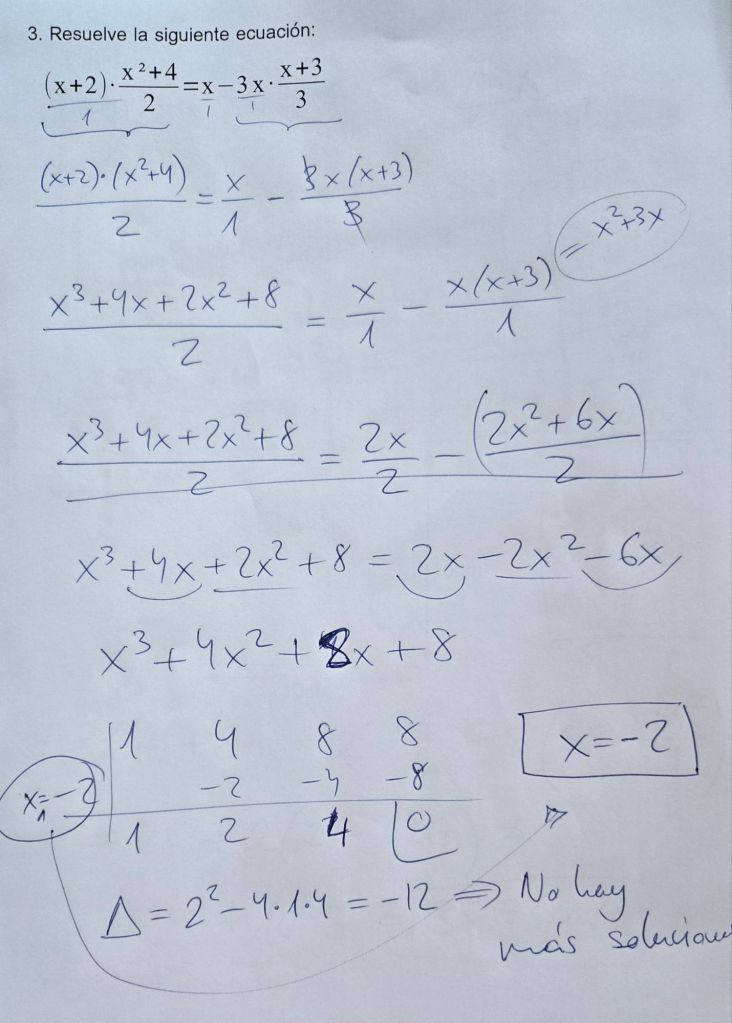 3. Resuelve la siguiente ecuación:
(x+2)·(x²+4)/2=x−3x·(x+3)/3
1 1 1
(x+2)·(x²+4)/2 = x/1 − 3x(x+3)/3
(x³+4x+2x²+8)/2 = x/1 − x(x+3)/1 = x²+3x
(x³+4x+2x²+8)/2 = 2x/2 − ((2x²+6x)/2)
x³+4x+2x²+8 = 2x−2x²−6x
x³+4x²+8x+8
1 4 8 8
x₁=−2 −2 −4 −8
1 2 4 0
x=−2
Δ=2²−4·1·4=−12 ⇒ No hay
más soluciones